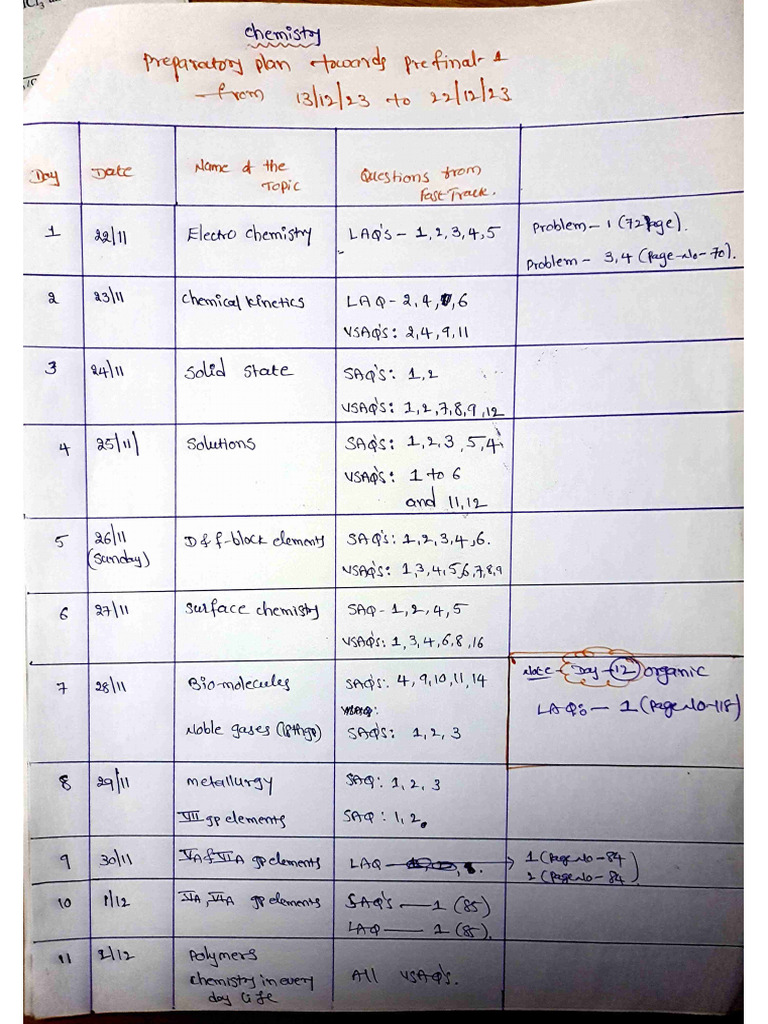 Chemistry
Preparatory plan towards prefinal-1
from 13/12/23 to 22/12/23
Day Date Name of the Topic Questions from Fast Track.
1 22/11 Electro chemistry LAQ'S - 1,2,3,4,5 Problem - 1 (72 Page).
Problem - 3,4 (Page-No-70).
2 23/11 chemical kinetics LAQ - 2,4, ,6
VSAQ'S: 2,4,9,11
3 24/11 Solid State SAQ'S: 1,2
VSAQ'S: 1,2,7,8,9,12
4 25/11 Solutions SAQ'S: 1,2,3,5,4
VSAQ'S: 1 to 6
and 11,12
5 26/11 (Sunday) D & f-block elements SAQ'S: 1,2,3,4,6.
VSAQ'S: 1,3,4,5,6,7,8,9
6 27/11 Surface chemistry SAQ - 1,2,4,5
VSAQ'S: 1,3,4,6,8,16
Note - Day - 12 organic
LAQ: - 1 (Page No-118)
7 28/11 Biomolecules SAQ'S: 4,9,10,11,14
Noble gases SAQ'S: 1,2,3
8 29/11 metallurgy SAQ: 1,2,3
VII gp elements SAQ: 1,2.
9 30/11 VA & VIA gp elements LAQ 1 (Page No-84)
2 (Page No-84)
10 1/12 VA, VIA gp elements SAQ'S - 1 (85)
LAQ - 1 (85).
11 2/12 Polymers
chemistry in every day life All VSAQ'S.